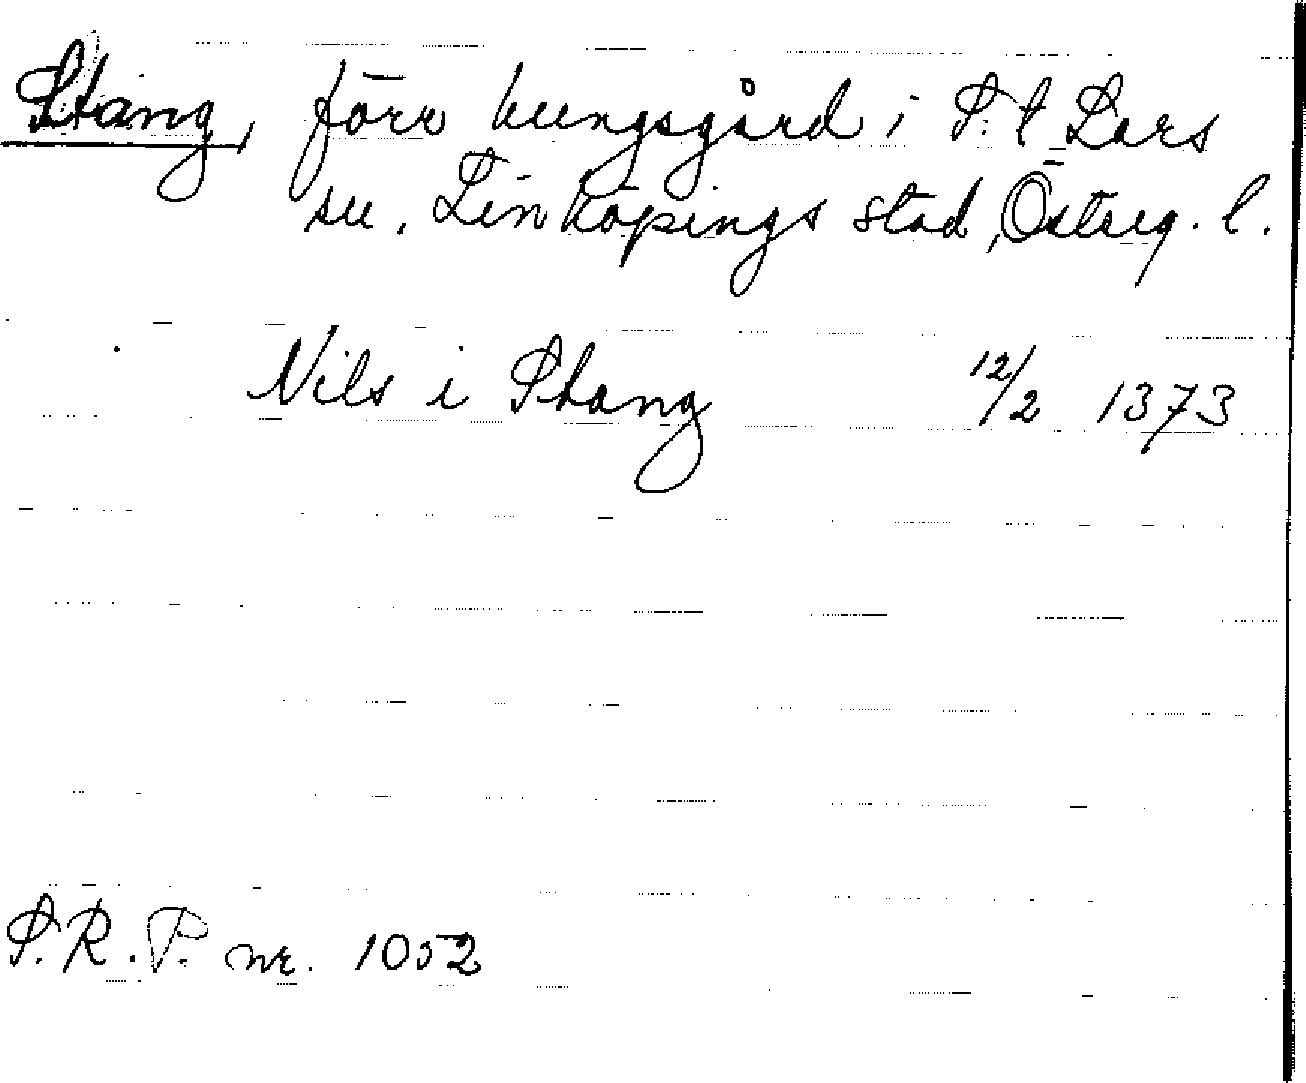 Stång, förr kungsgård i S:t Lars
sn. Linköpings stad, Östrg. l.
Nils i Stang 12/2 1373
S.R.P. nr. 1052